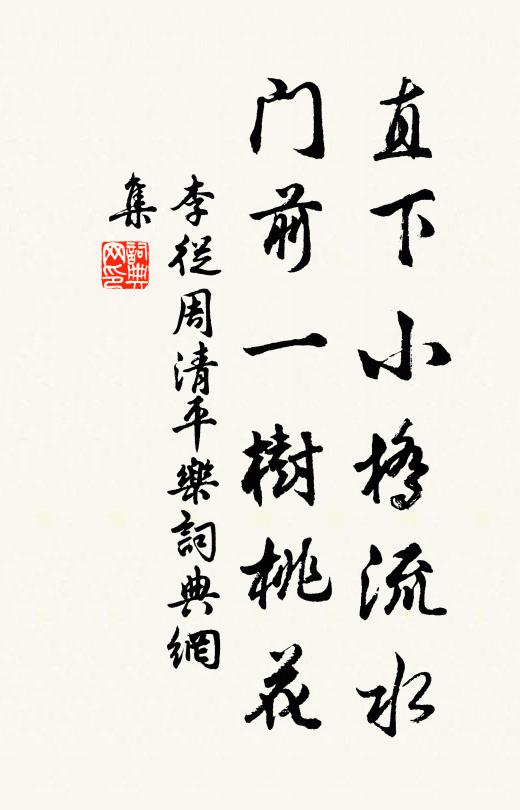 直下小橋流水
門前一樹桃花
李從周清平樂詞典網
集
詞典
网印